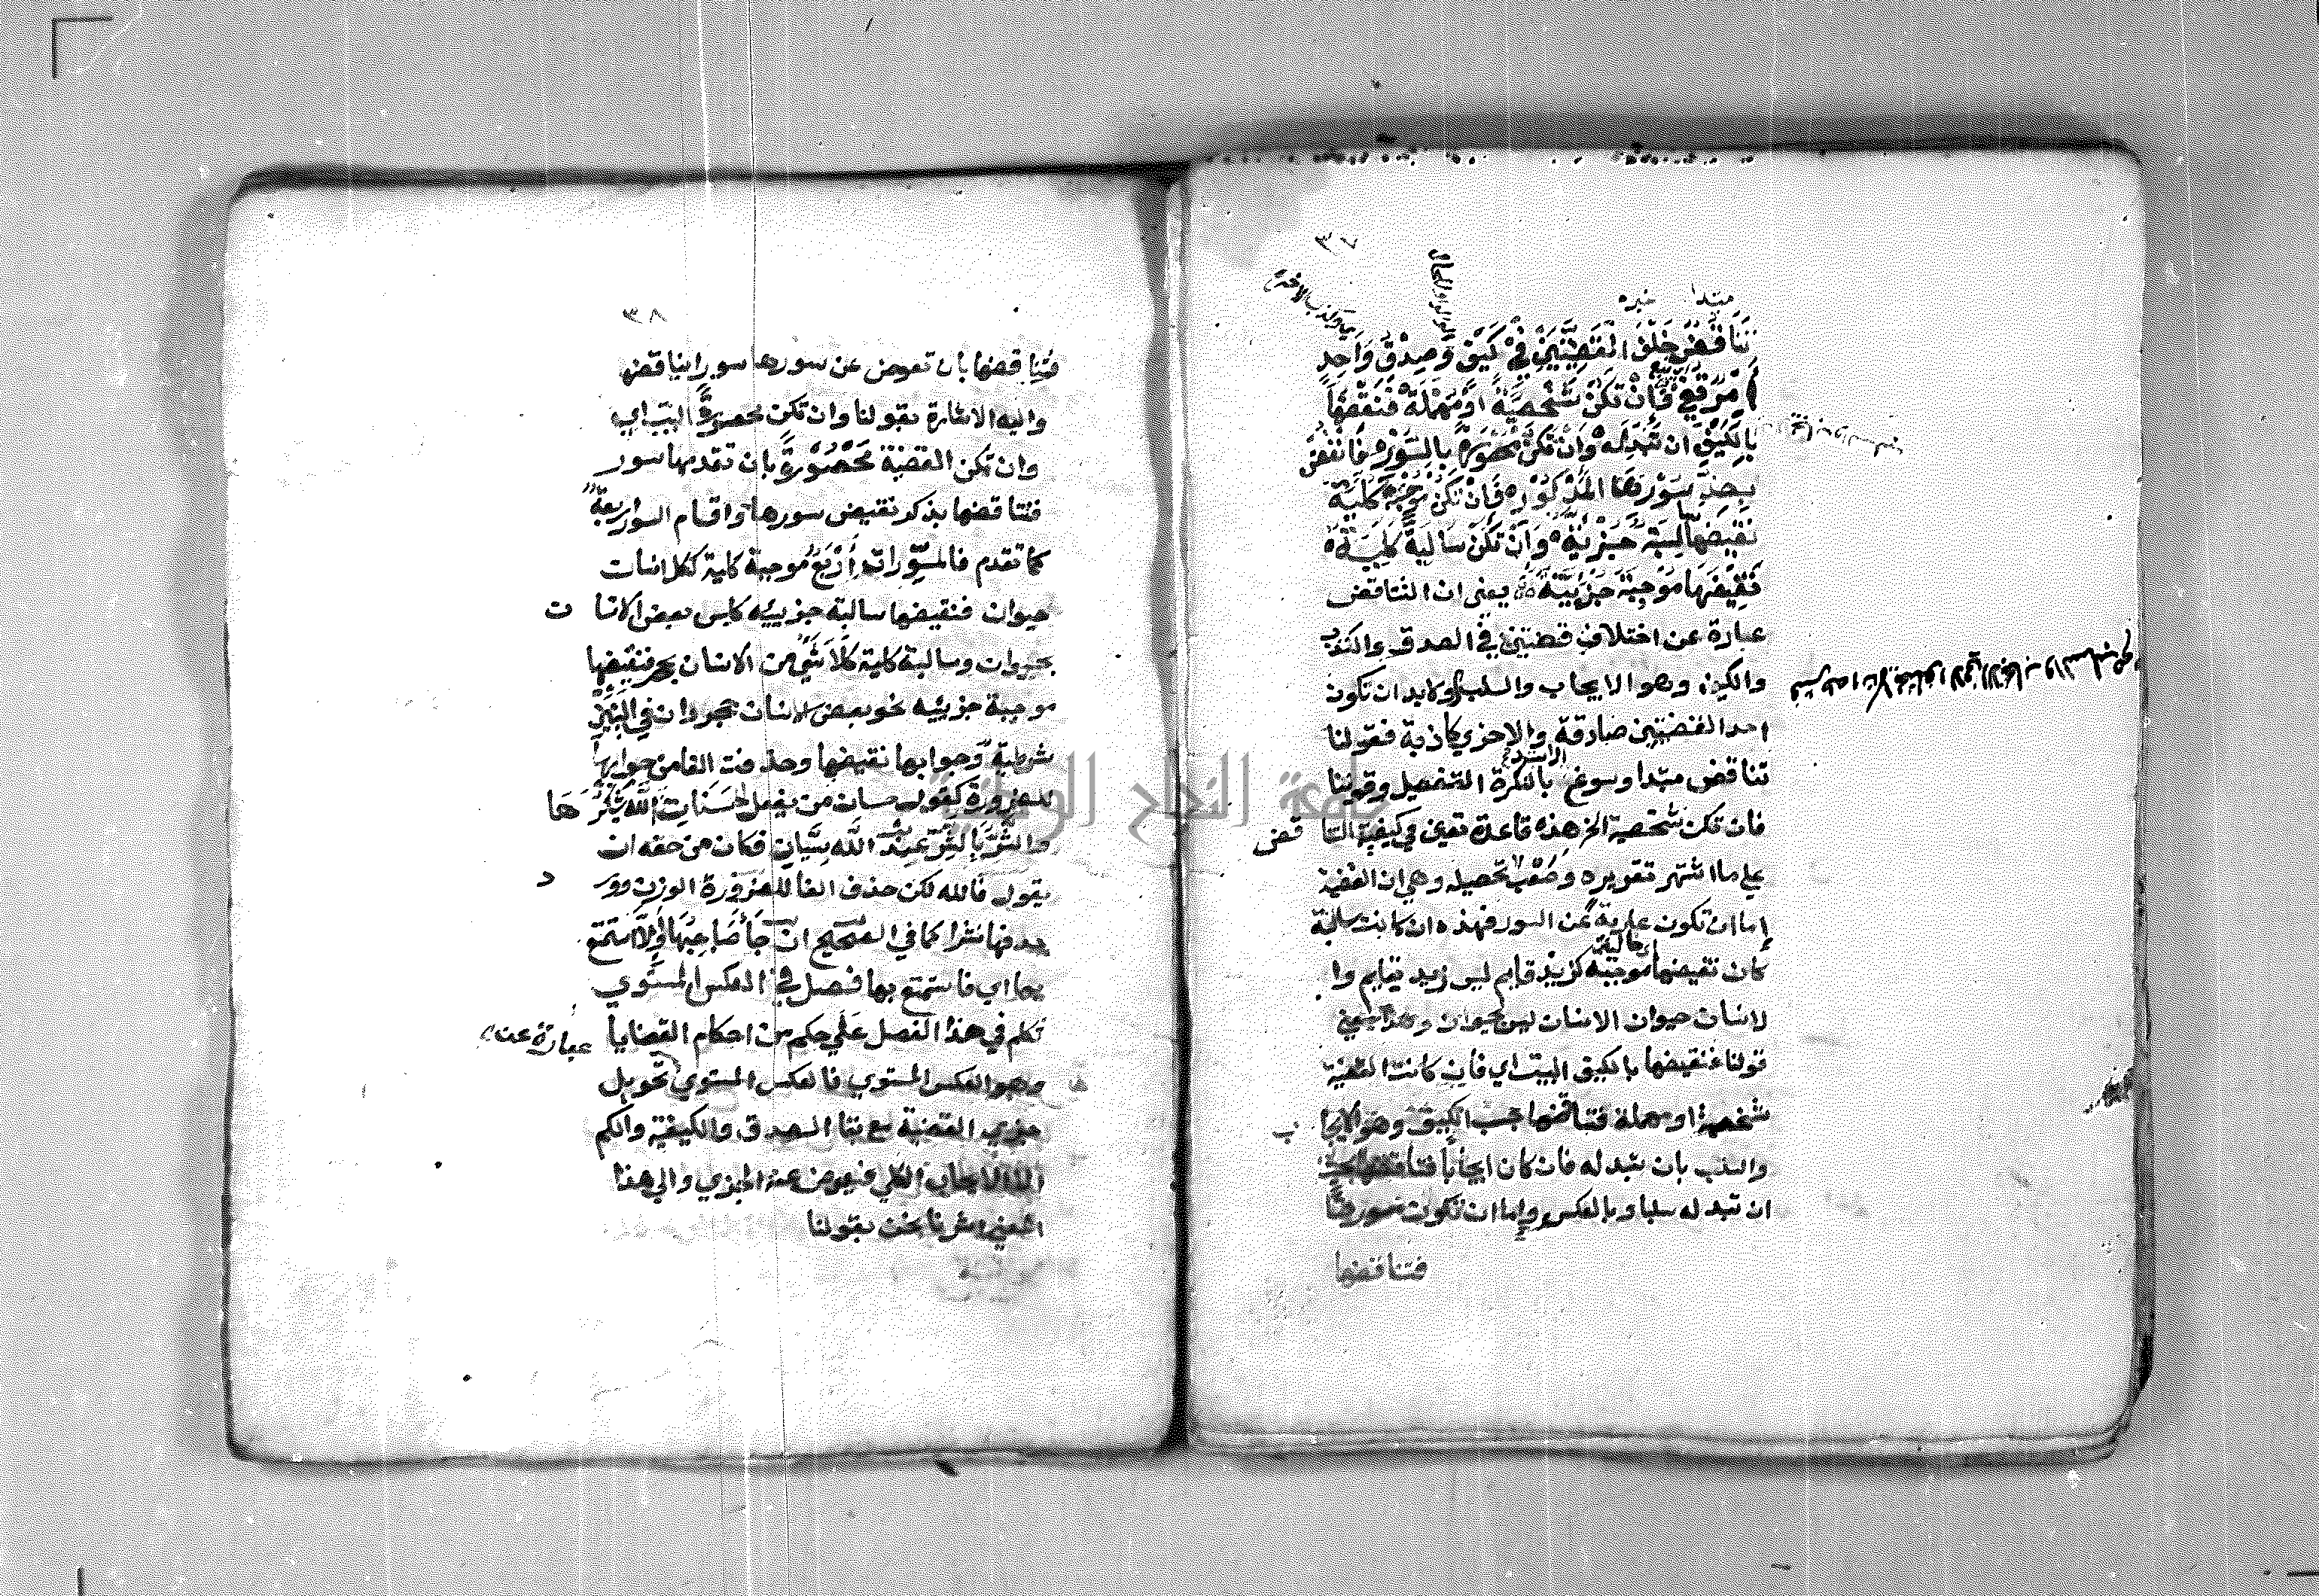 ٣٧
مبتدا خبره
تَنَاقُضٌ خُلْفُ الْقَضِيَّتَيْنِ فِي كَيْفٍ وَصِدْقُ وَاحِدٍ
أمْرٌ قُفِي فَإِنْ تَكُنْ شَخْصِيَّةً أَوْ مُهْمَلَهْ فَنَقْضُهَا
بِالْكَيْفِ ان تُبَدِّلَهْ وَإِنْ تَكُنْ مَحْصُورَةً بِالسُّوْرِ فَانْقُضْ
بِضِدِّ سُوْرِهَا الْمَذْكُوْرِ فَإِنْ تَكُنْ مُوْجَبَةً كُلِّيَّهْ
نَقِيْضُهَا سَالِبَةٌ جُزْئِيَّهْ وَإِنْ تَكُنْ سَالِبَةً كُلِّيَّهْ
نَقِيْضُهَا مُوْجَبَةٌ جُزْئِيَّهْ يعني ان التناقض
عبارة عن اختلاف قضيتين في الصدق والكذب
والكيف وهو الايجاب والسلب ولابد ان تكون
احد القضيتين صادقة والاخري كاذبة فقولنا
تناقض مبتدا وسوغ الابتداء بالنكرة التفصيل وقولنا
فان تكن شخصية الخ هذه قاعدة تعين في كيفية التناقض
علي ما اشتهر تقريره وصعب تحصيله وهي ان القضية
إما ان تكون عارية عن السور فهذه ان كانت سالبة
كان نقيضها موجبة كزيد قايم ليس زيد بقايم وا
لانسان حيوان الانسان ليس بحيوان وهذا معني
قولنا فنقيضها بالكيف البيت اي فان كانت القضية
شخصية او مهملة فتناقضها بحسب الكيف وهو الايجاب
والسلب بان تبدله فان كان ايجابا فتناقضها بحسب
ان تبدله سلبا وبالعكس واما ان تكون مسورة
فتناقضها
٣٨
فتناقضها بان تعوض عن سورها سورا يناقضه
واليه الاشارة بقولنا وان تكن محصورة البيت اي
وان تكن القضية مَحْصُوْرَةً بان تقدمها سور
فتناقضها بذكر نقيض سورها واقسام السور اربعة
كما تقدم فالمسوّرات أَرْبَعٌ موجبة كلية ككل انسان
حيوان فنقيضها سالبة جزييه كليس بعض الانسان
بحيوان وسالبة كلية كلا شي من الانسان بحجر فنقيضها
موجبة جزييه نحو بعض الانسان حجر وان في البيتين
شرطية وجوابها نقيضها وحذفت الفا من جوابها
للضرورة كقول حسان من يفعل الحسنات اللّه يشكرها
والشرّ بالشرّ عند اللّه سيّان فكان من حقه ان
يقول فالله لكن حذف الفا للضرورة الوزن وورد
حذفها نثرا كما في الصحيح ان جَا صَاحِبُهَا وإلاّ استمتع
بها اي فاستمتع بها فصل في العكس المستوي
تكلم في هذا الفصل علي حكم من احكام القضايا
وهو العكس المستوي فالعكس المستوي عبارة عن تحويل
جزءي القضية مع بقا الصدق والكيفية والكم
الا الايجاب الكلي فيعوض عنه الجزي والي هذا
المعني اشرنا بقولنا
جامعة النجاح الوطنية